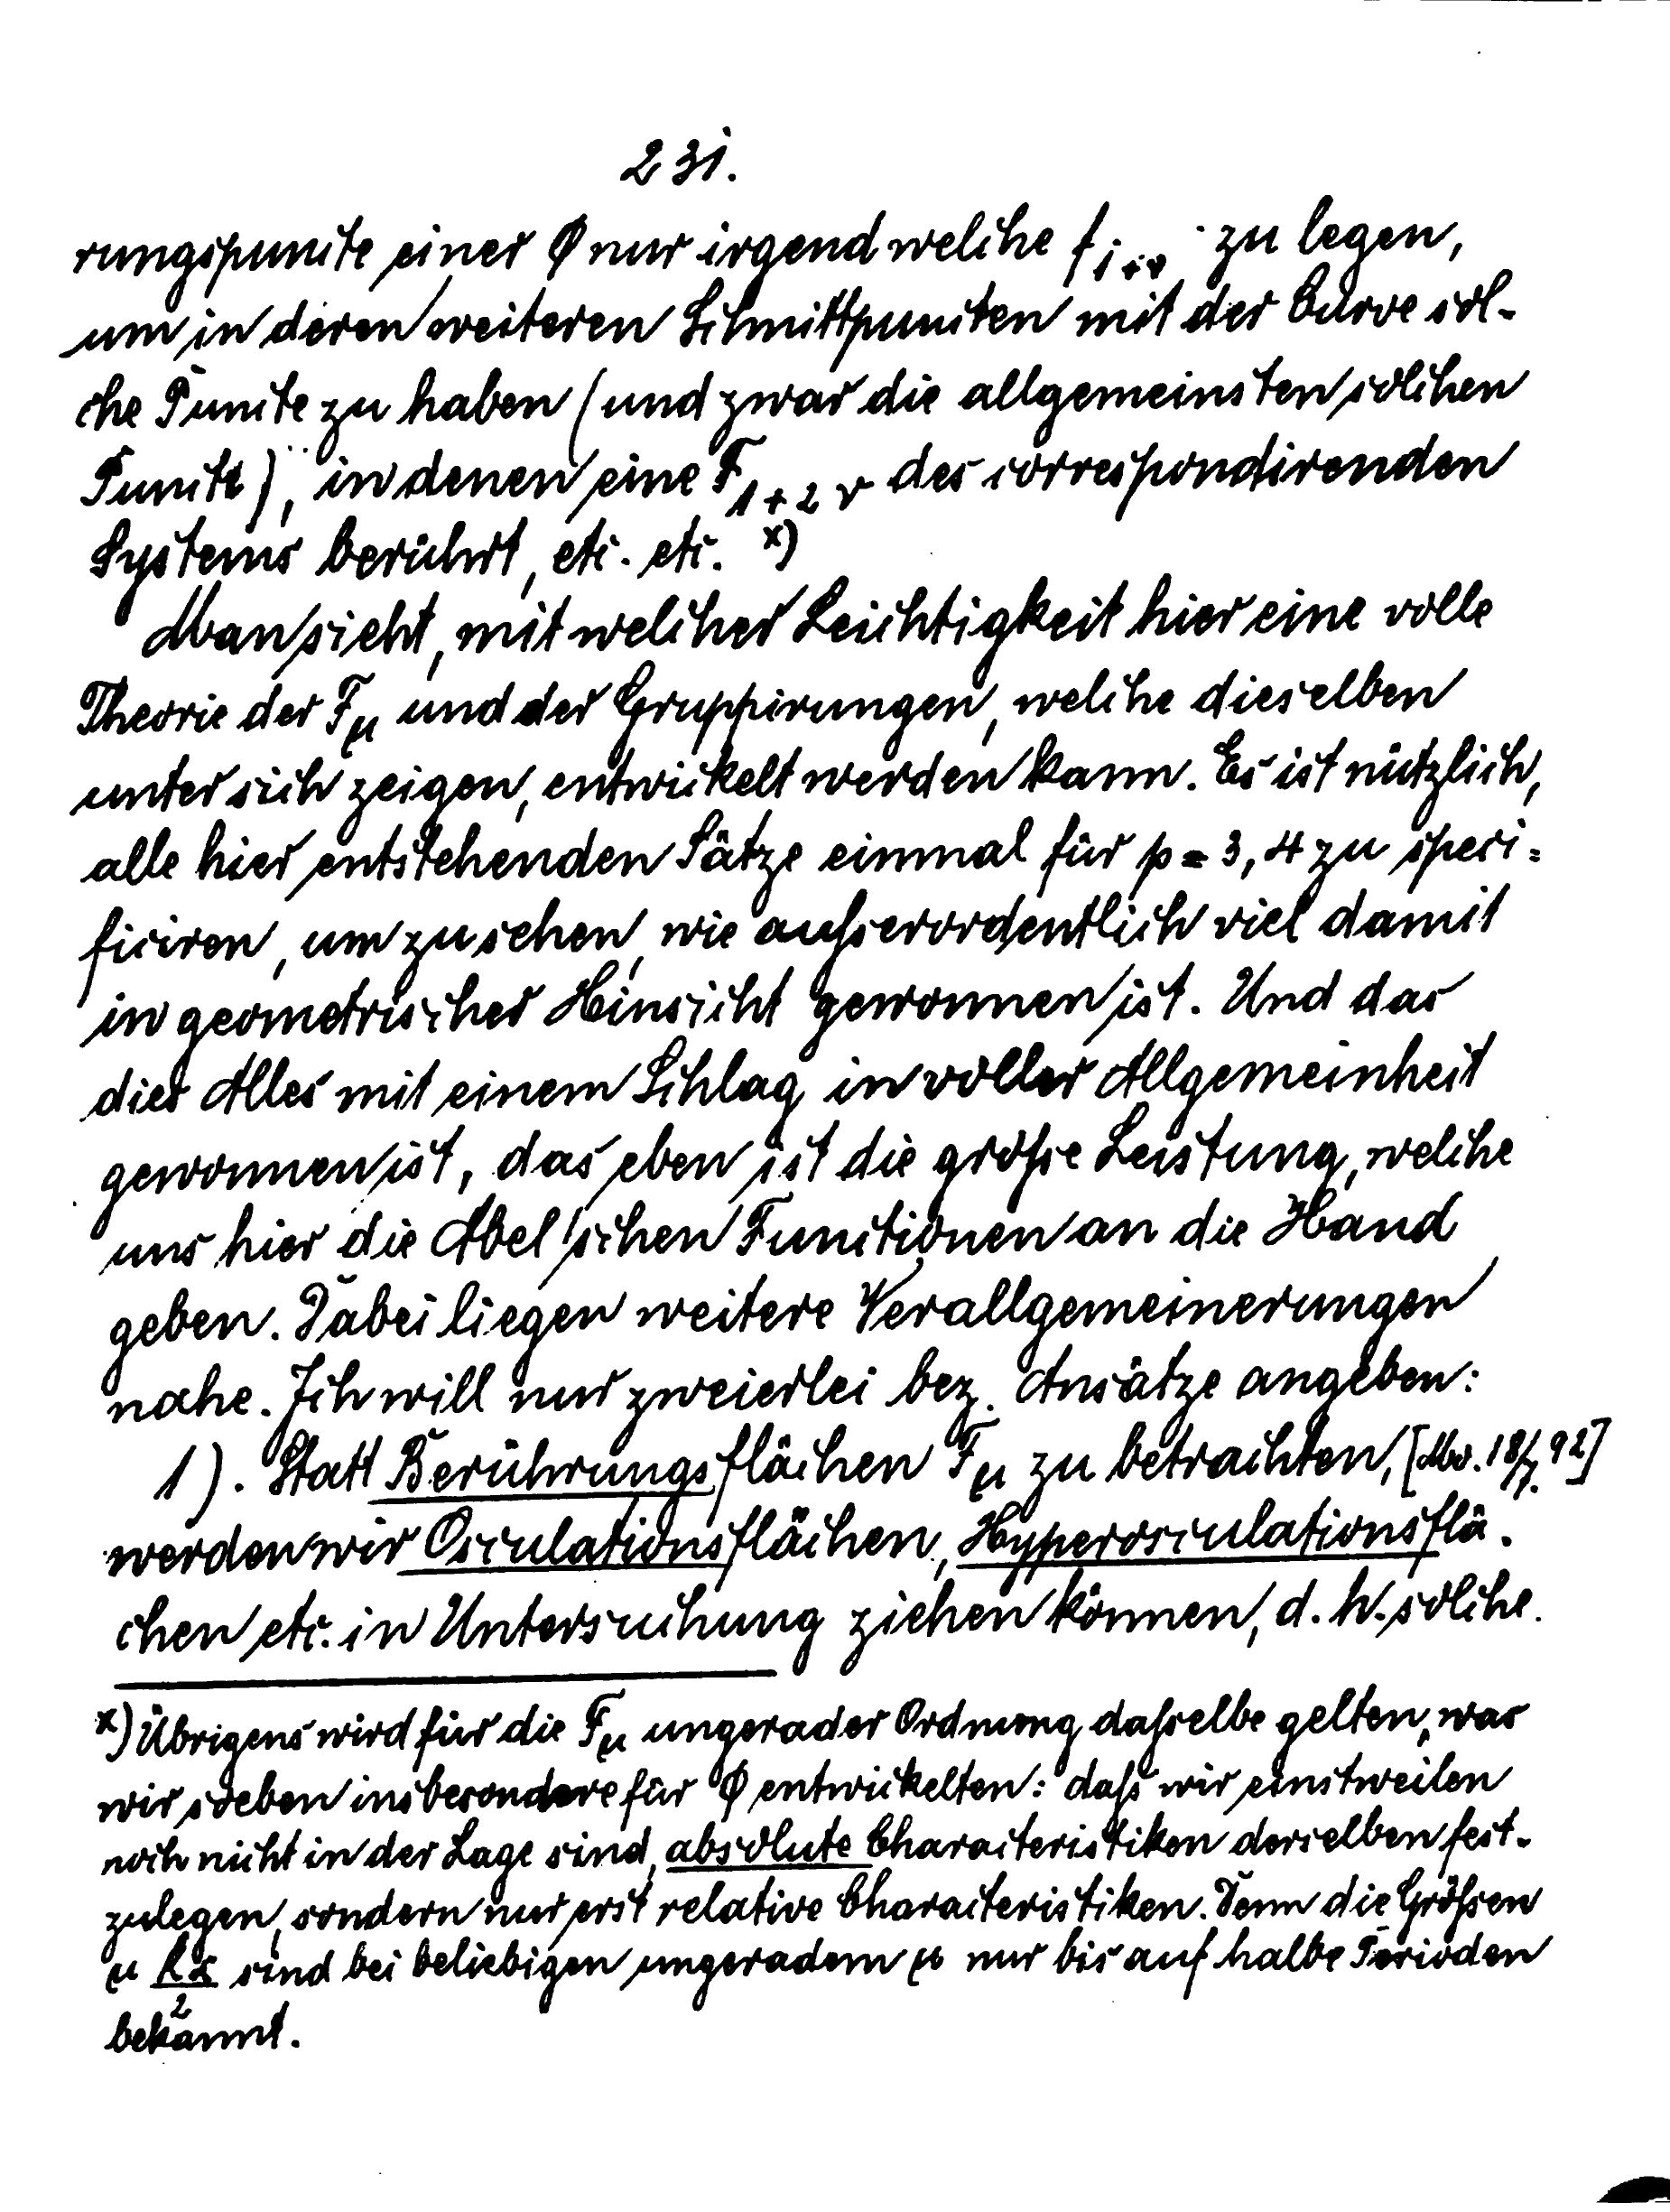 231.
rungspuncte einer Φ nur irgend welche f₁₊ᵥ zu legen,
um in deren weiteren Schnittpuncten mit der Curve sol-
che Puncte zu haben (und zwar die allgemeinsten solchen
Puncte), in denen eine F₁₊₂ᵥ des correspondirenden
Systems berührt, etc. etc. x)
Man sieht, mit welcher Leichtigkeit hier eine volle
Theorie der Fμ und der Gruppirungen, welche dieselben
unter sich zeigen, entwickelt werden kann. Es ist nützlich,
alle hier entstehenden Sätze einmal für p = 3, 4 zu speci=
ficiren, um zu sehen, wie aufserordentlich viel damit
in geometrischer Hinsicht gewonnen ist. Und das
dies Alles mit einem Schlag in voller Allgemeinheit
gewonnen ist, das eben ist die grofse Leistung, welche
uns hier die Abel'schen Functionen an die Hand
geben. Dabei liegen weitere Verallgemeinerungen
nahe. Ich will nur zweierlei bez. Ansätze angeben:
1). Statt Berührungsflächen Fμ zu betrachten, [Mo. 18/7. 92]
werden wir Osculationsflächen, Hyperosculationsflä-
chen etc. in Untersuchung ziehen können, d. h. solche
x) Übrigens wird für die Fμ ungerader Ordnung dafselbe gelten, was
wir soeben insbesondere für Φ entwickelten: dafs wir einstweilen
noch nicht in der Lage sind, absolute Characteristiken derselben fest-
zulegen, sondern nur erst relative Characteristiken. Denn die Gröfsen
μ kα/2 sind bei beliebigen ungeradem μ nur bis auf halbe Perioden
bekannt.